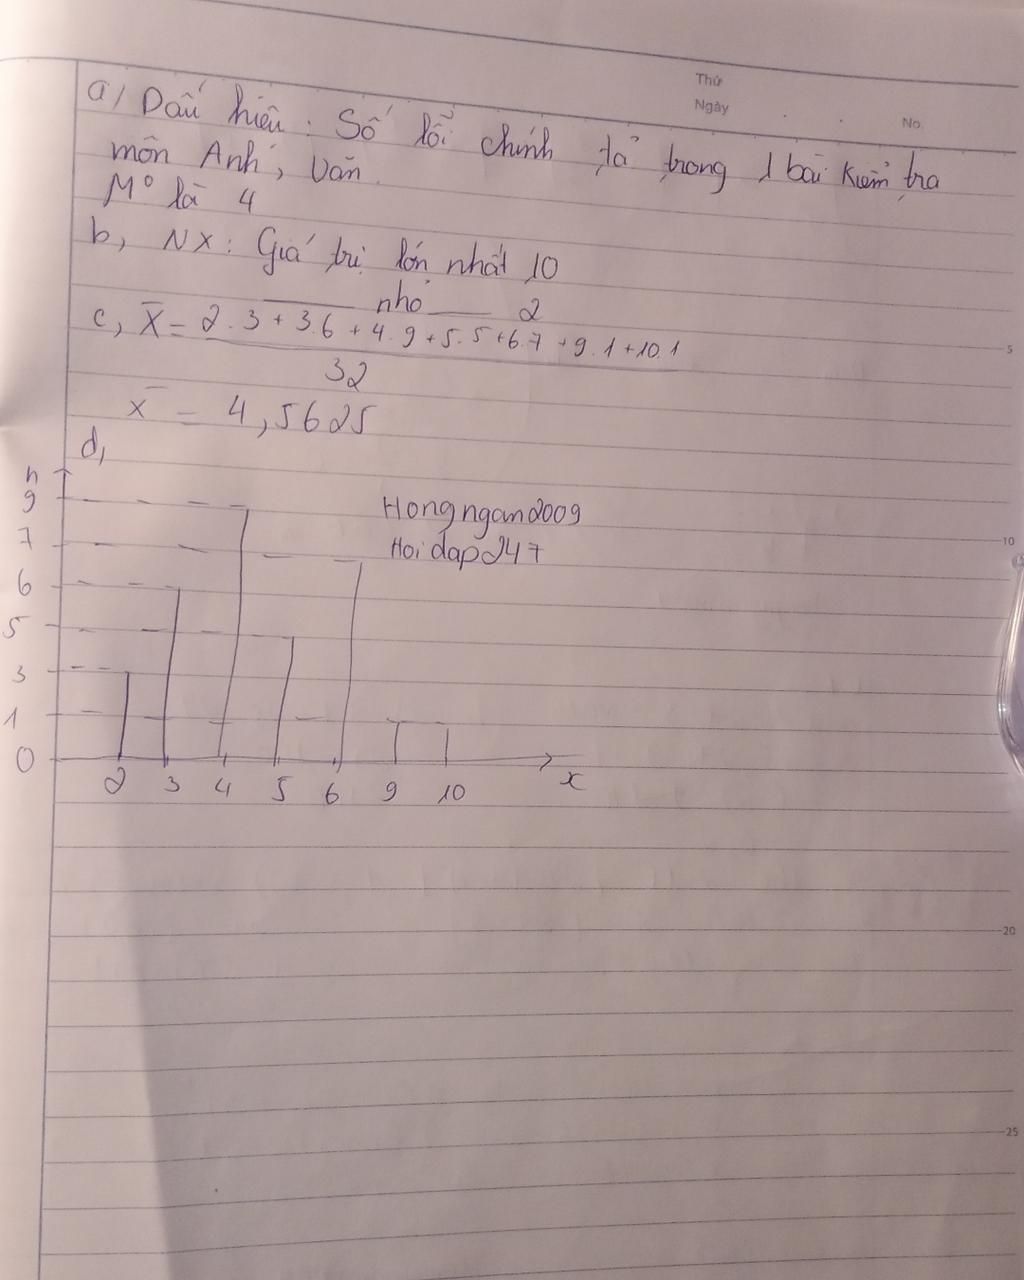 Thứ
Ngày . . No.
a/ Dấu hiệu : Số lỗi chính tả trong 1 bài kiểm tra
môn Anh, Văn.
M° là 4
b, NX : Giá trị lớn nhất 10
——— nhỏ ——— 2
c, X̄ = 2.3 + 3.6 + 4.9 + 5.5 + 6.7 + 9.1 + 10.1
32
x̄ = 4,5625
d,
n
9
7
6
5
3
1
0
2 3 4 5 6 9 10 x
Hongngan2009
Hoidap247
5
10
20
25